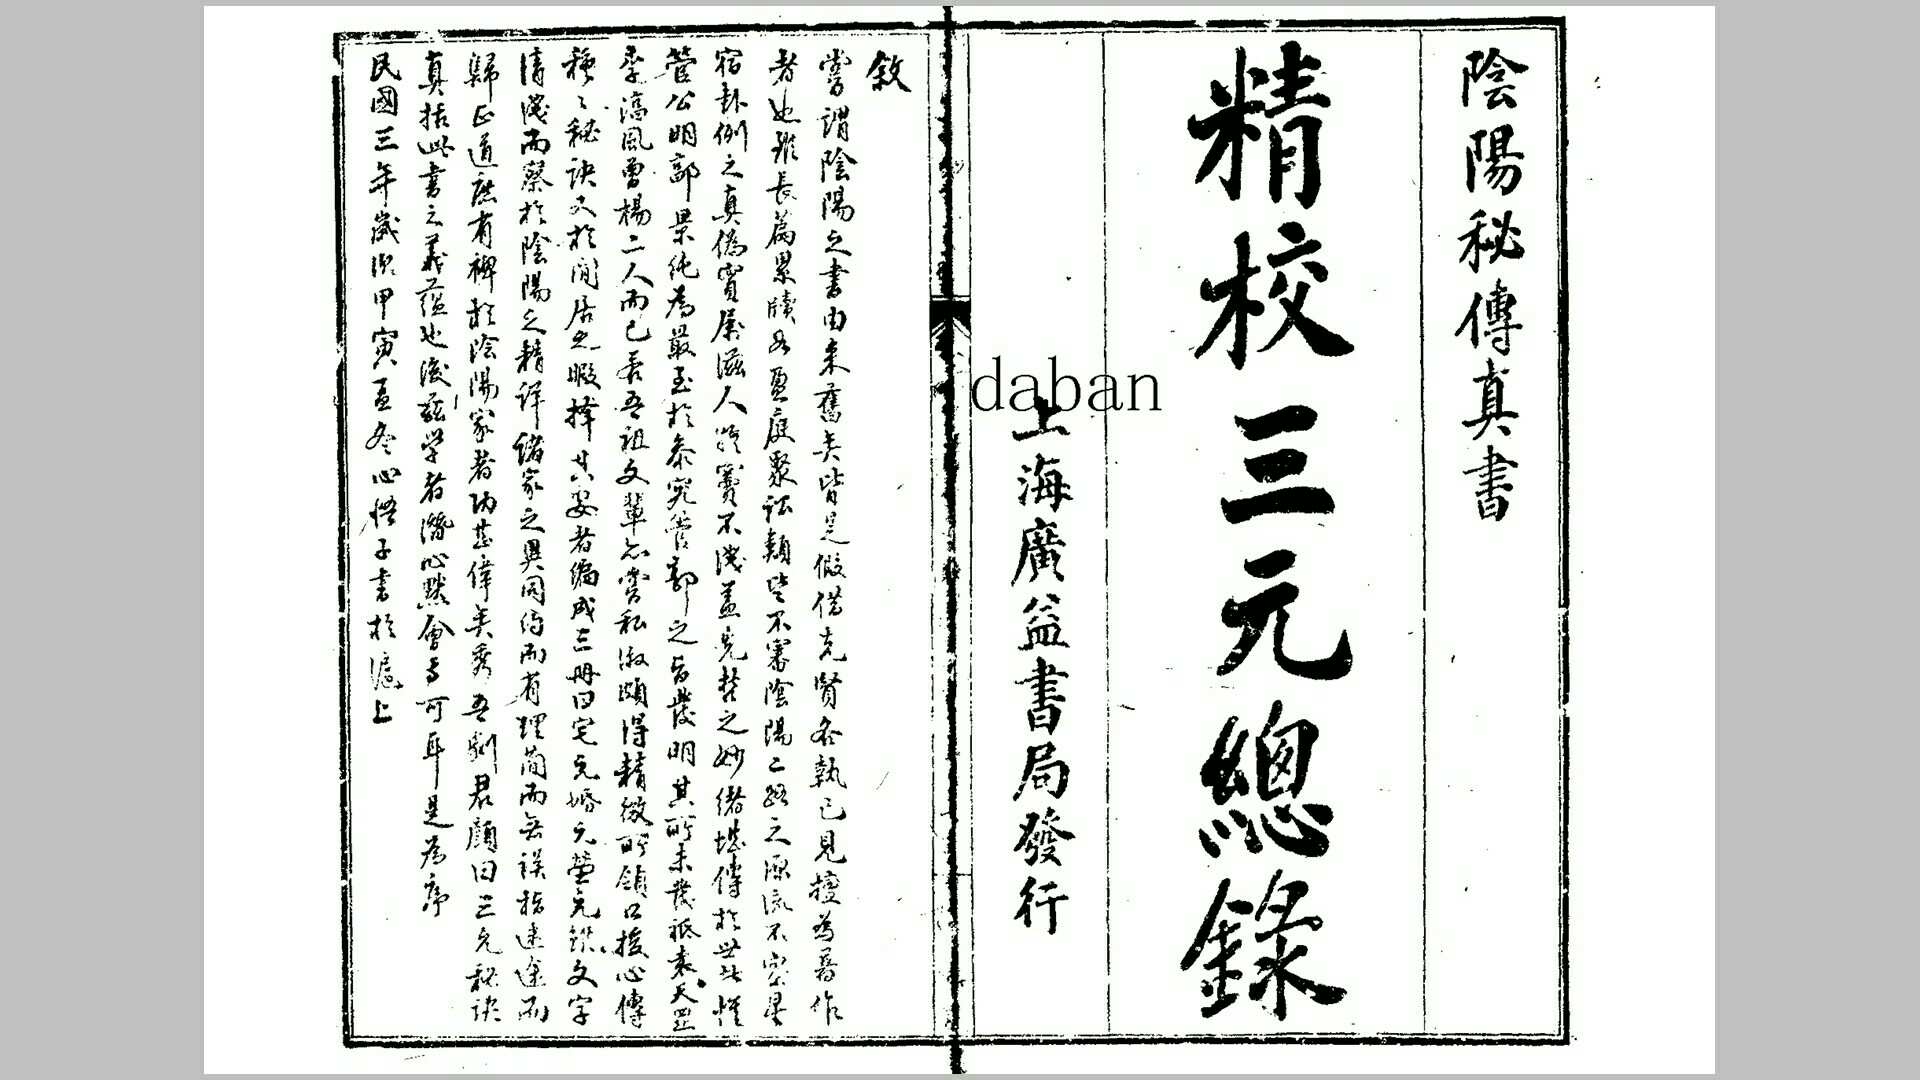 陰陽秘傳真書
精校三元總錄
上海廣益書局發行
daban
敘
嘗謂陰陽之書由来舊矣皆是假借先賢各執己見擅為著作
者也雖長篇累牘必盈庭聚訟類皆不審陰陽二路之源流不察星
宿卦例之真偽實屬滋人疑竇不淺盖先哲之妙緒堪傳於世者惟
管公明郭景純為最至於叅究管郭之旨發明其所未發祗袁天罡
李淳風曾楊二人而已吾吾祖文輩亦嘗私淑頗得精微所領口授心傳
種之秘訣又於閒居之暇擇其要者編成三冊曰宅元婚元塋元雖文字
清淺而蔡於陰陽之精詳諸家之異同約而有理簡而無誤指迷途而
歸正道庶有裨於陰陽家者功甚偉矣秀吾劉君顏曰三元秘訣
真括此書之義蘊也後茲学者潛心默會焉可耳是為序
民國三年歲次甲寅孟冬心悟子書於滬上